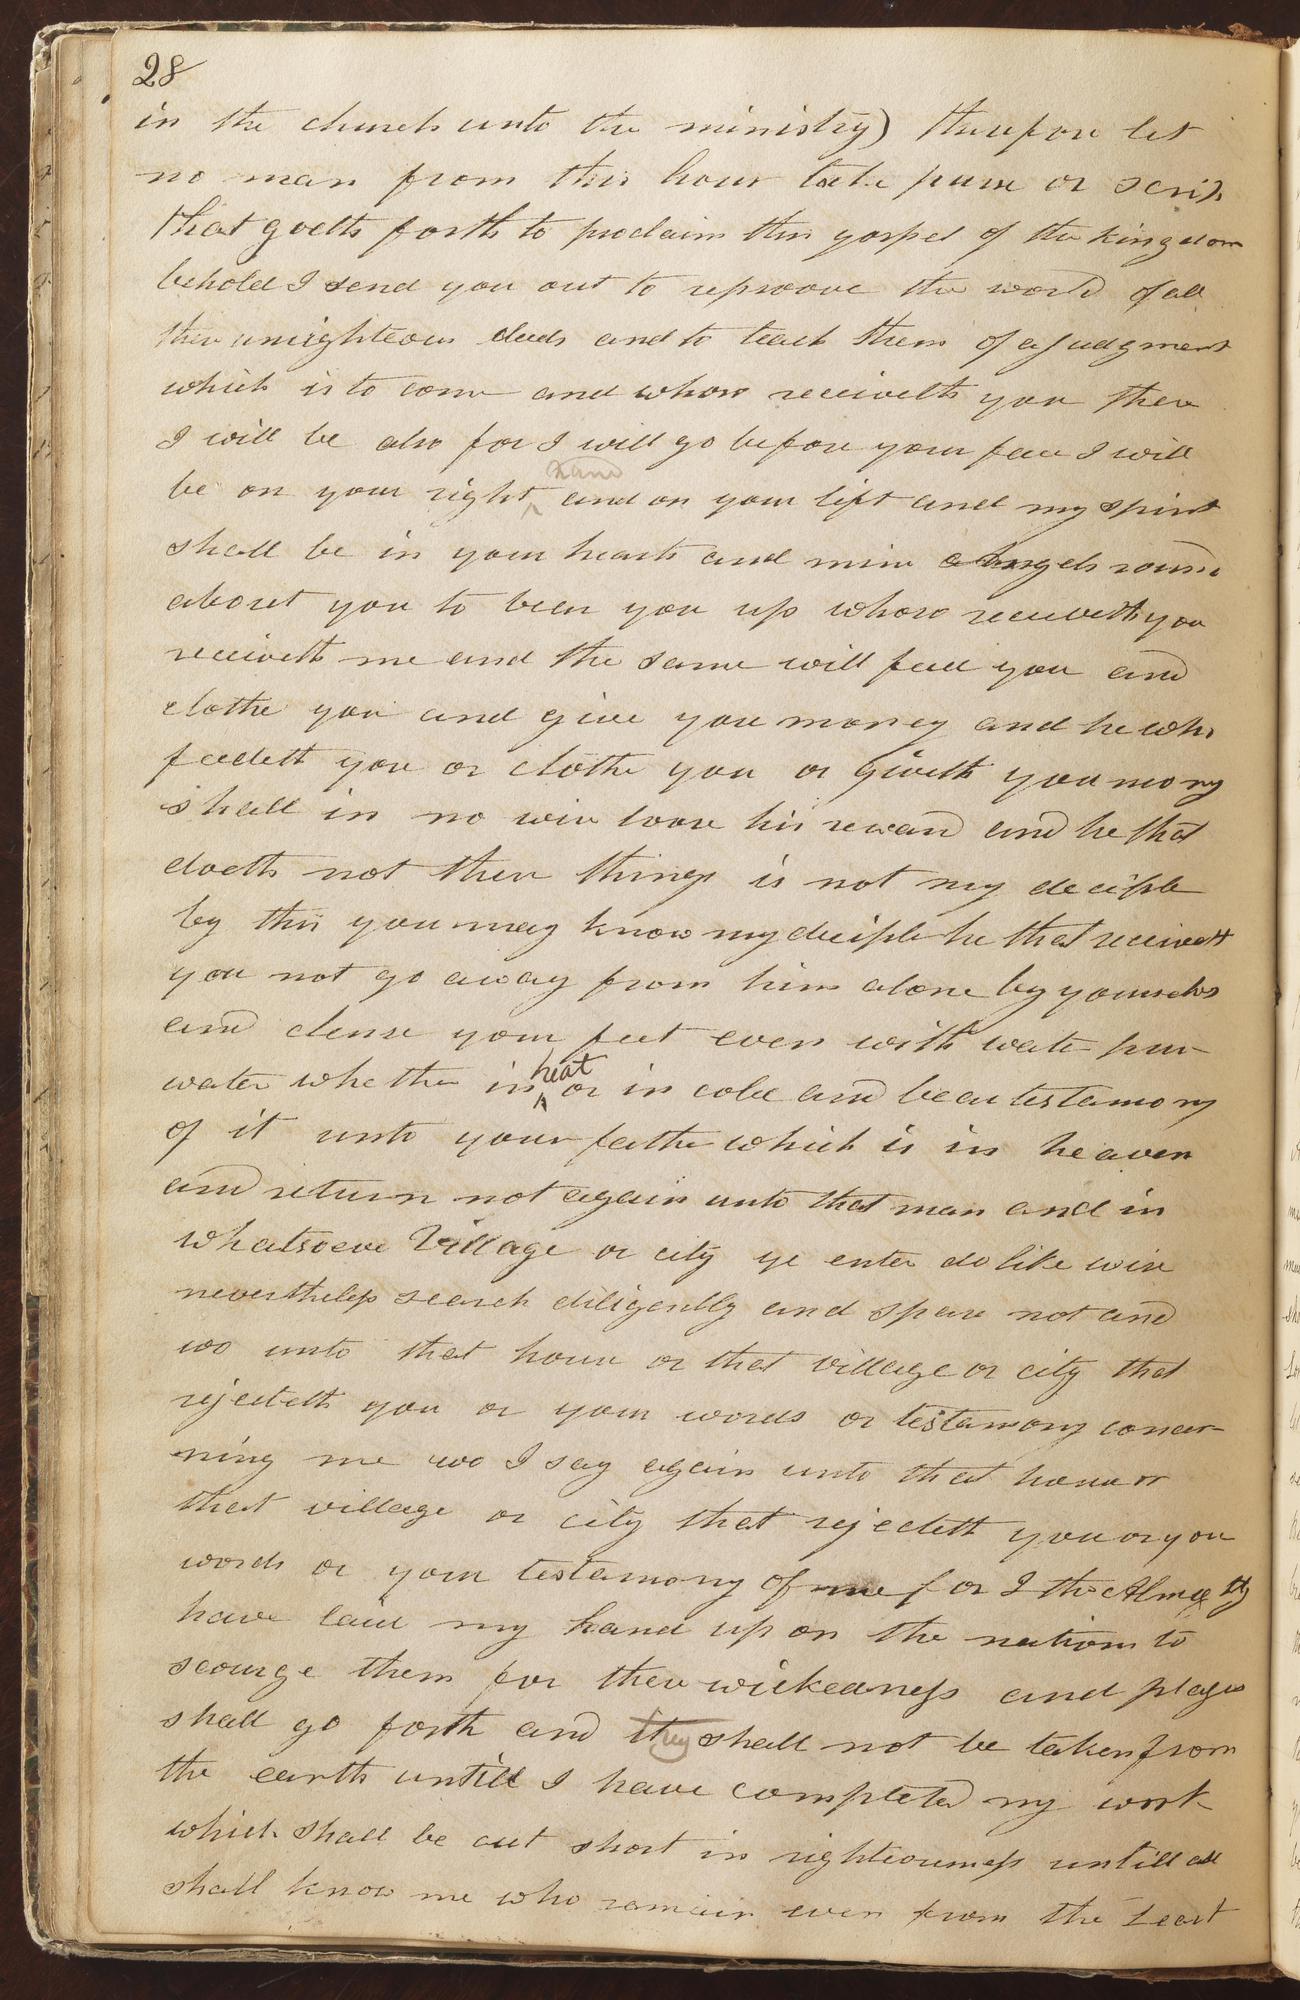 28
in the church unto the ministry) therefore let
no man from this hour take purse or scrip
that goeth forth to proclaim this gospel of the kingdom
behold I send you out to reproove the world of all
their unrighteous deeds and to teach them of a judgment
which is to come and whoso receiveth you there
I will be also for I will go before your face I will
hand
be on your right ^ and on your left and my spirit
shall be in your hearts and mine angels round
about you to bear you up whoso receiveth you
receiveth me and the same will feed you and
clothe you and give you money and he who
feedeth you or clothe you or giveth you mony
shall in no wise loose his reward and he that
doeth not these things is not my deciple
by this you may know my deciple he that receiveth
you not go away from him alone by yourselvs
and clense your feet even with water pure
heat
water whether in ^ or in cold and bear testamony
of it unto your father which is in heaven
and return not again unto that man and in
whatsoever Village or city ye enter do like wise
nevertheless search diligently and spare not and
wo unto that house or that village or city that
rejecteth you or your words or testamony concer-
ning me wo I say again unto that house or
that village or city that rejecteth you or you
words or your testamony of me for I the Almighty
have laid my hand up on the nations to
scourge them for their wickedness and plages
shall go forth and they shall not be taken from
the earth untill I have completed my work
which shall be cut short in righteousness untill all
shall know me who remain even from the least